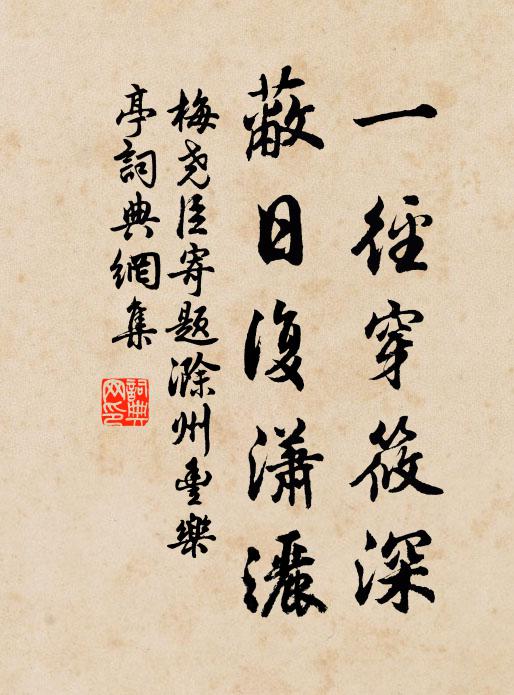 一徑穿筱深
蔽日復瀟灑
梅堯臣寄題滁州豐樂
亭詞典網集
詞典
网印